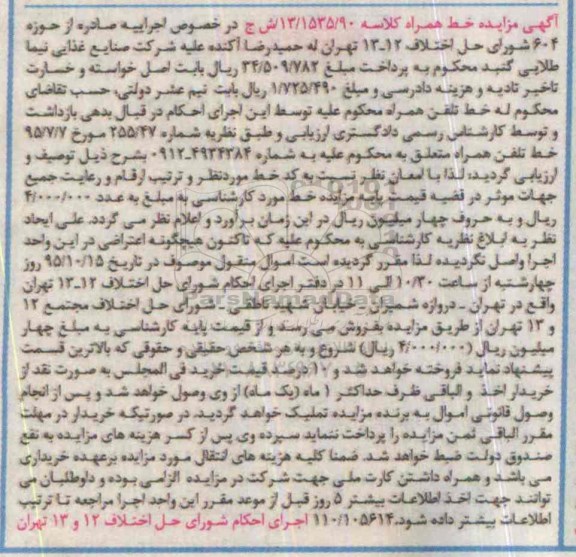 آگهی مزایده خط همراه کلاسه ۱۳/۱۵۳۵/۹۰/ش ج در خصوص اجراییه صادره از حوزه
۶۰۴ شورای حل اختلاف ۱۲ـ۱۳ تهران له حمیدرضا آکنده علیه شرکت صنایع غذایی نیما
طلایی گنبد محکوم به پرداخت مبلغ ۳۴/۵۰۹/۷۸۲ ریال بابت اصل خواسته و خسارت
تاخیر تادیه و هزینه دادرسی و مبلغ ۱/۷۲۵/۴۹۰ ریال بابت نیم عشر دولتی، حسب تقاضای
محکوم له خط تلفن همراه محکوم علیه توسط این اجرای احکام در قبال بدهی بازداشت
و توسط کارشناس رسمی دادگستری ارزیابی و طبق نظریه شماره ۲۵۵/۴۷ مورخ ۹۵/۷/۷
خط تلفن همراه متعلق به محکوم علیه به شماره ۰۹۱۲-۴۹۳۴۳۸۴ بشرح ذیل توصیف و
ارزیابی گردید؛ لذا با امعان نظر نسبت به کد خط موردنظر و ترتیب ارقام و رعایت جمیع
جهات موثر در قضیه قیمت پایه مزایده خط مورد کارشناسی به مبلغ به عدد ۴/۰۰۰/۰۰۰
ریال و به حروف چهار میلیون ریال در این زمان برآورد و اعلام نظر می گردد. علی ایحاد
نظر به ابلاغ نظریه کارشناسی به محکوم علیه که تاکنون هیچگونه اعتراضی در این واحد
اجرا واصل نگردیده لذا مقرر گردیده است اموال منقول موصوف در تاریخ ۹۵/۱۰/۱۵ روز
چهارشنبه از ساعت ۱۰/۳۰ الی ۱۱ در دفتر اجرای احکام شورای حل اختلاف ۱۲ـ۱۳ تهران
واقع در تهران ـ دروازه شمیران ـ خیابان شهید کاظمی ـ شورای حل اختلاف مجتمع ۱۲
و ۱۳ تهران از طریق مزایده بفروش می رسد و از قیمت پایه کارشناسی به مبلغ چهار
میلیون ریال (۴/۰۰۰/۰۰۰ ریال) شروع و به هر شخص حقیقی و حقوقی که بالاترین قسمت
پیشنهاد نماید فروخته خواهد شد و ۱۰درصد قیمت خرید فی المجلس به صورت نقد از
خریدار اخذ و الباقی ظرف حداکثر ۱ ماه (یک ماه) از وی وصول خواهد شد و پس از انجام
وصول قانونی اموال به برنده مزایده تملیک خواهد گردید، در صورتیکه خریدار در مهلت
مقرر الباقی ثمن مزایده را پرداخت ننماید سپرده وی پس از کسر هزینه های مزایده به نفع
صندوق دولت ضبط خواهد شد. ضمنا کلیه هزینه های انتقال مورد مزایده برعهده خریداری
می باشد و همراه داشتن کارت ملی جهت شرکت در مزایده الزامی بوده و داوطلبان می
توانند جهت اخذ اطلاعات بیشتر ۵ روز قبل از موعد مقرر این واحد اجرا مراجعه تا ترتیب
اطلاعات بیشتر داده شود.۱۱۰/۱۰۵۶۱۴ اجرای احکام شورای حل اختلاف ۱۲ و ۱۳ تهران